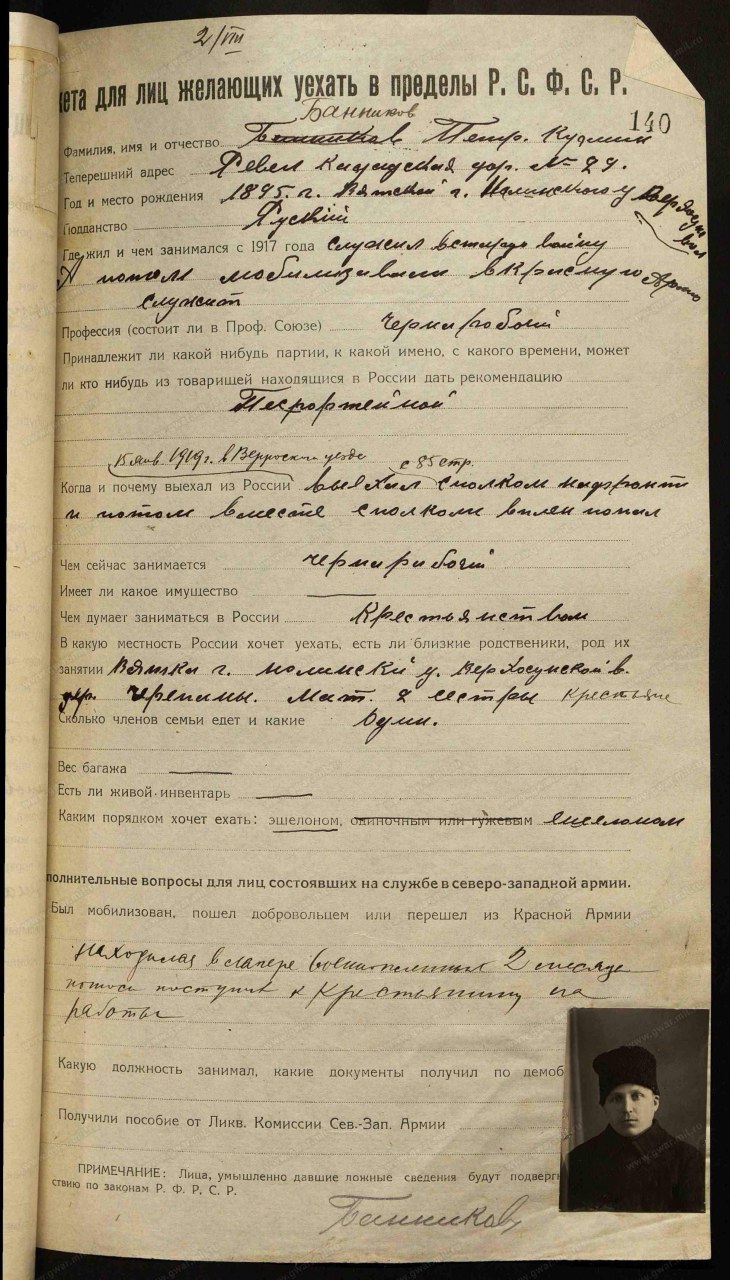 2/VIII
кета для лиц желающих уехать в пределы Р. С. Ф. С. Р.
140
Банников
Фамилия, имя и отчество Банников Петр. Кузмич
Теперешний адрес Ревел дор. № 79.
Год и место рождения 1895. г. Вятской г. Нолинского у
Подданство Руский
Где жил и чем занимался с 1917 года служил встарую войну
А потом мобилизавали вкрасную Армию
служит
Профессия (состоит ли в Проф. Союзе) Чернарабочий
Принадлежит ли какой нибудь партии, к какой имено, с какого времени, может
ли кто нибудь из товарищей находящися в России дать рекомендацию
15 янв 1919 г. в Верроском уезде с 85 стр.
Когда и почему выехал из России выехал сполком нафронт
и потом вместе сполком вплен попал
Чем сейчас занимается чернарабочий
Имеет ли какое имущество
Чем думает заниматься в России Крестьянством
В какую местность России хочет уехать, есть ли близкие родственики, род их
занятии Вятка г. нолинский у. в.
дер. Мат. 2 сестры крестьяне
Сколько членов семьи едет и какие Один.
Вес багажа
Есть ли живой инвентарь
Каким порядком хочет ехать: эшелоном, одиночным или гужевым
полнительные вопросы для лиц состоявших на службе в северо-западной армии.
Был мобилизован, пошел добровольцем или перешел из Красной Армии
находился влагере военнопленных 2 месяца
потом поступил к крестьянину на
работы
Какую должность занимал, какие документы получил по демоб
Получили пособие от Ликв. Комиссии Сев.-Зап. Армии
ПРИМЕЧАНИЕ: Лица, умышленно давшие ложные сведения будут подверг
ствию по законам Р. Ф. Р. С. Р.
Банников